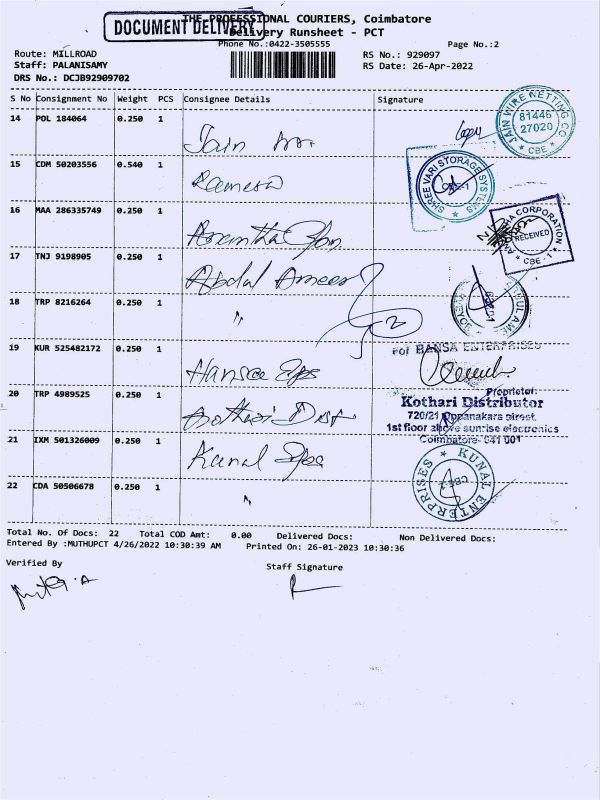 THE PROFESSIONAL COURIERS, Coimbatore
DOCUMENT DELIVERY
Delivery Runsheet - PCT
Phone No.:0422-3505555
Page No.:2
Route: MILLROAD
RS No.: 929097
Staff: PALANISAMY
RS Date: 26-Apr-2022
DRS No.: DCJB92909702
S No Consignment No Weight PCS Consignee Details Signature
14 POL 184064 0.250 1
Jain
JAIN WIRE NETTING CO
81446
27020
* CBE *
15 CDM 50203556 0.540 1
Ramesh
SHREE VARI STORAGE SYSTEMS
16 MAA 286335749 0.250 1
CORPORATION
RECEIVED
* CBE - 1 *
17 TNJ 9198905 0.250 1
Abdul Ameer
18 TRP 8216264 0.250 1
"
19 KUR 525482172 0.250 1
For HANSA ENTERPRISES
Proprietor
20 TRP 4989525 0.250 1
Kothari Dist
Kothari Distributor
720/21 Oppanakara street,
1st floor above sunrise electronics
Coimbatore- 641 001
21 IXM 501326009 0.250 1
Kunal
KUNAL ENTERPRISES
22 CDA 50506678 0.250 1
"
Total No. Of Docs: 22 Total COD Amt: 0.00 Delivered Docs: Non Delivered Docs:
Entered By :MUTHUPCT 4/26/2022 10:30:39 AM Printed On: 26-01-2023 10:30:36
Verified By
Staff Signature